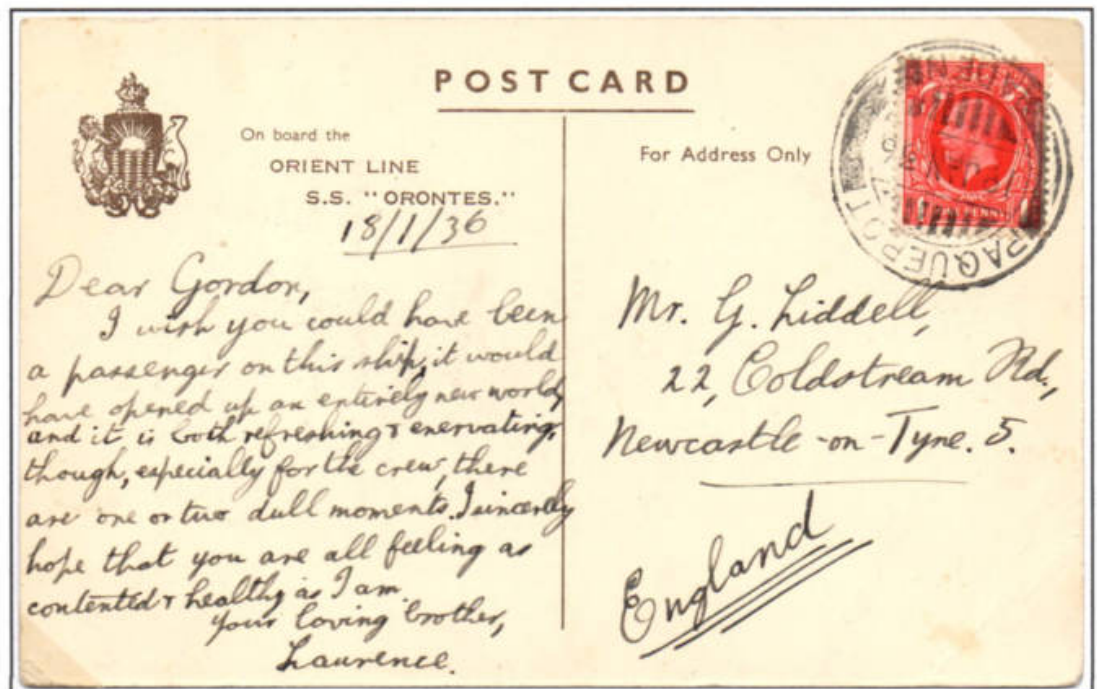 POST CARD
On board the
ORIENT LINE
S.S. "ORONTES."
18/1/36
Dear Gordon,
I wish you could have been
a passenger on this ship, it would
have opened up an entirely new world,
and it is both refreshing & enervating,
though, especially for the crew, there
are one or two dull moments. I sincerely
hope that you are all feeling as
contented & healthy as I am.
Your loving brother,
Laurence.
For Address Only
PAQUEBOT
Mr. G. Liddell,
22, Coldstream Rd.,
Newcastle-on-Tyne. 5.
England